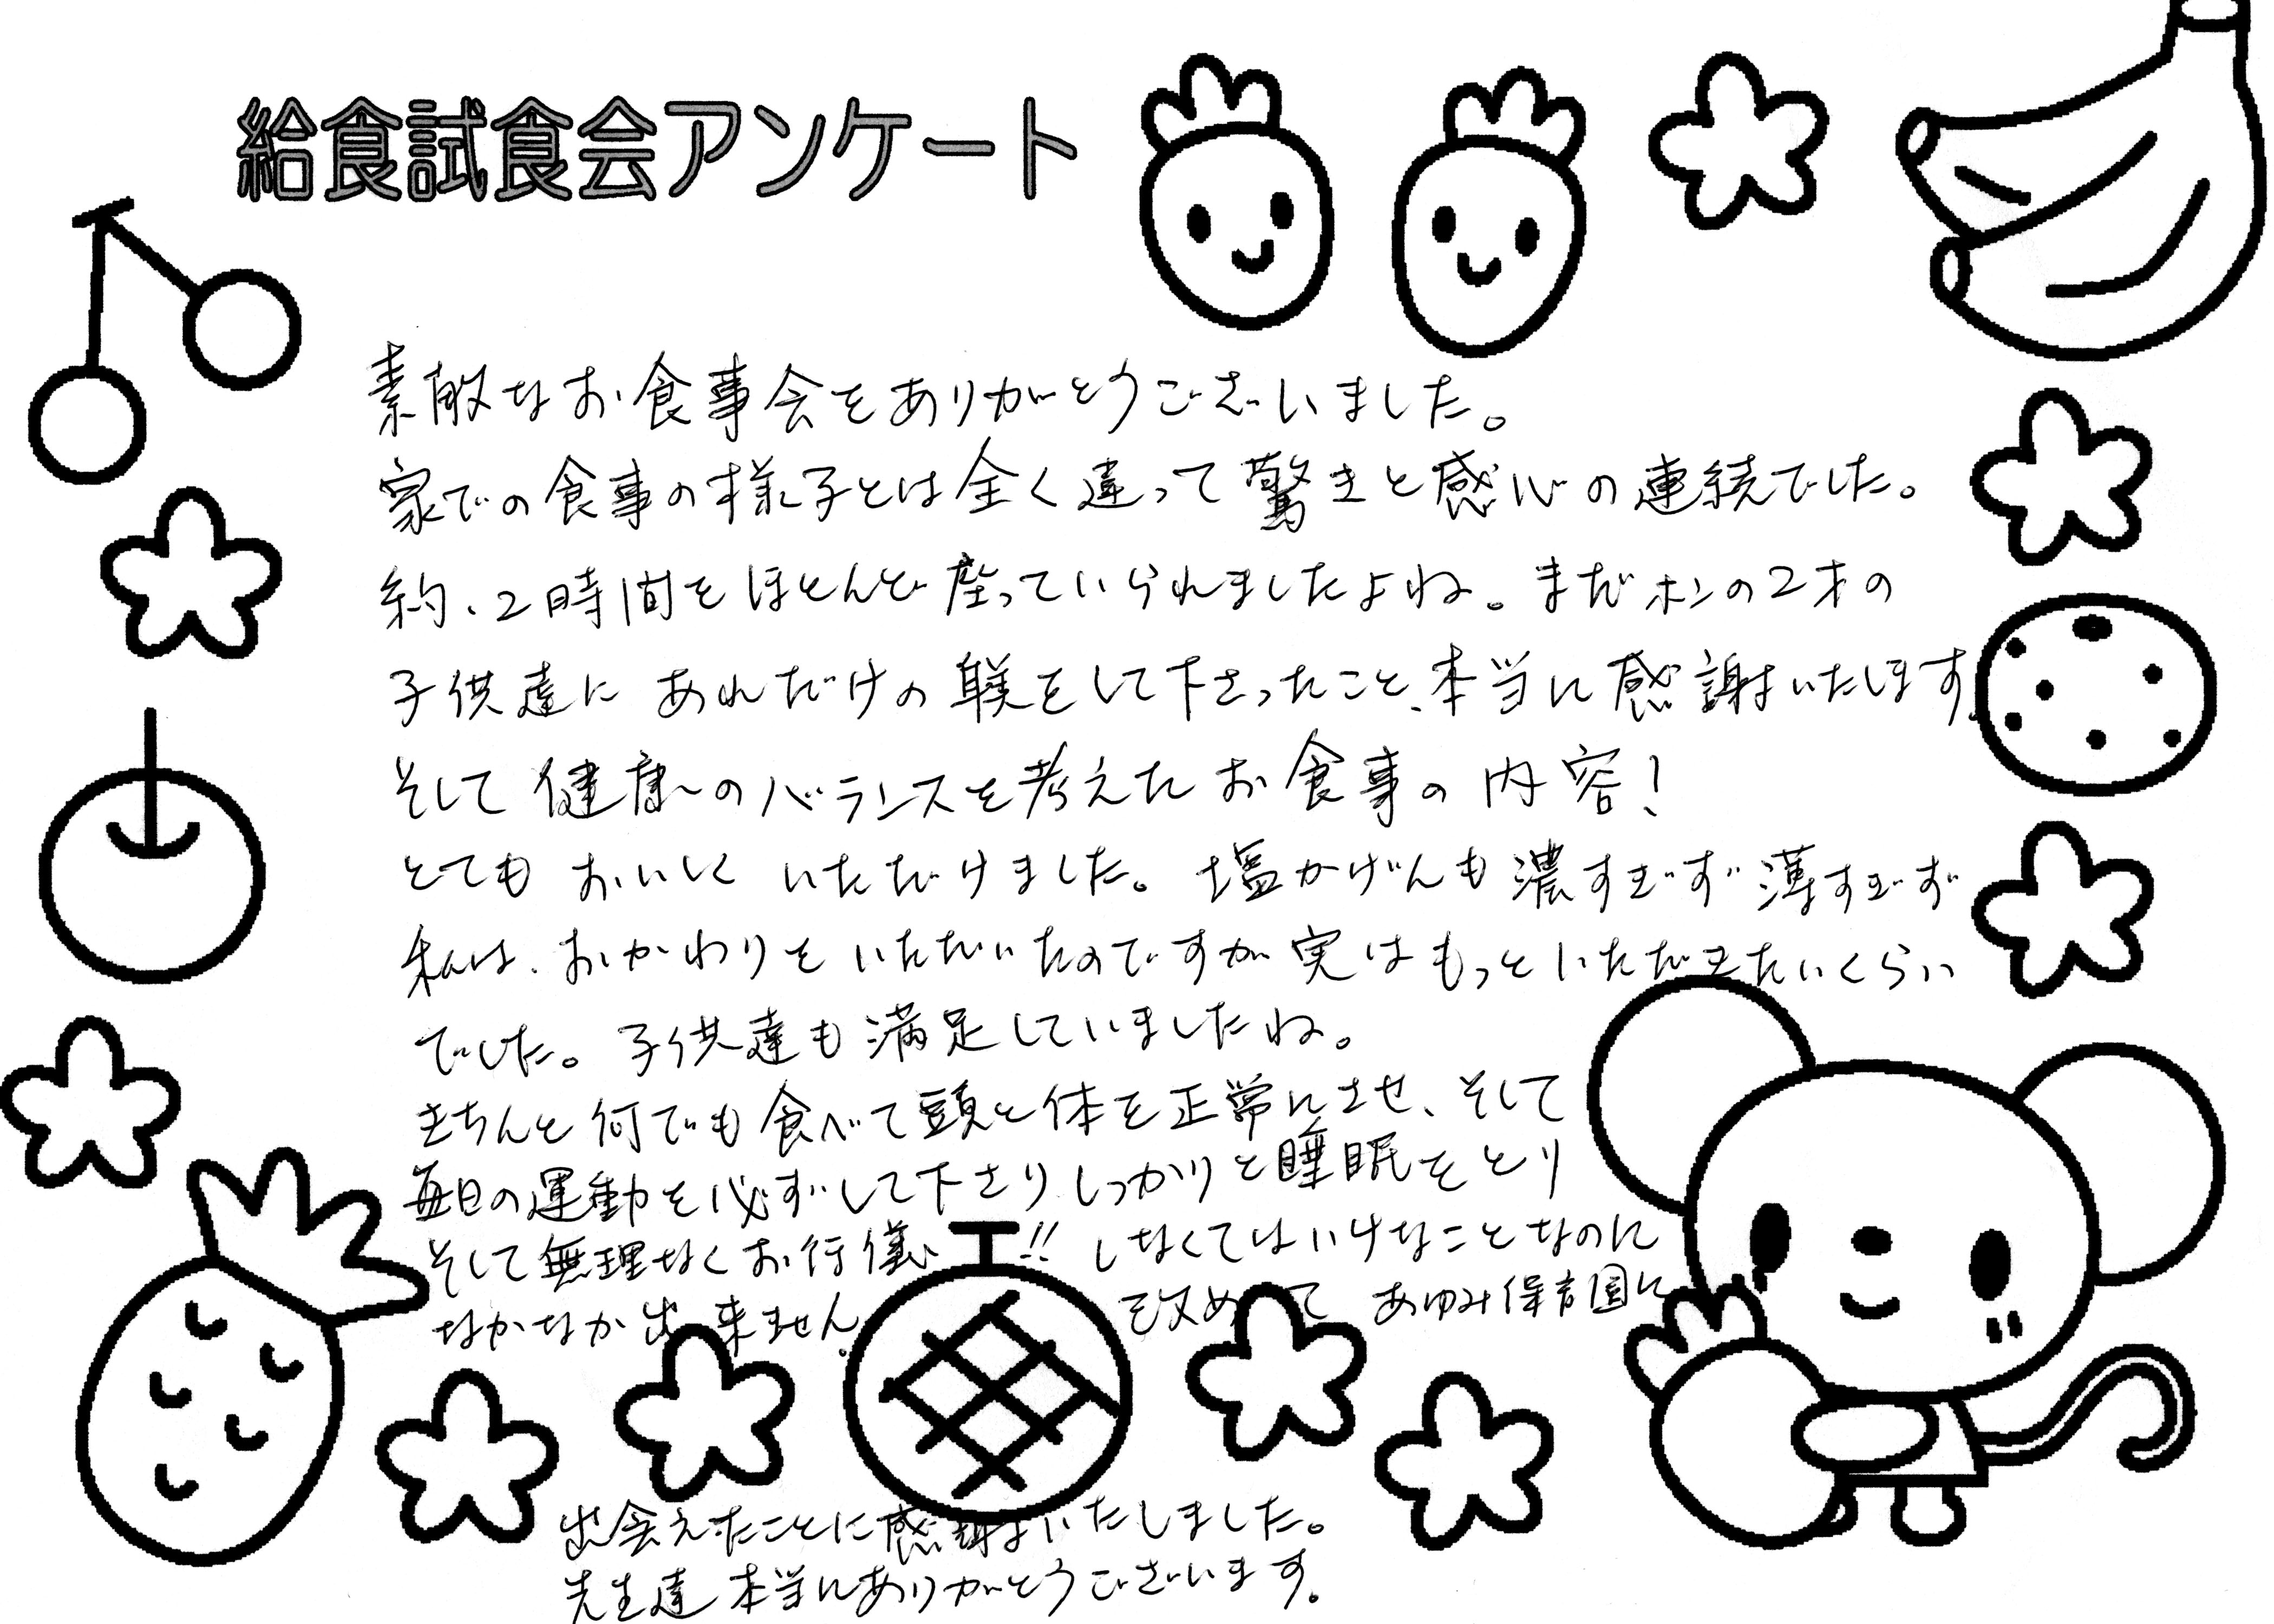 給食試食会アンケート
素敵なお食事会をありがとうございました。
家での食事の様子とは全く違って驚きと感心の連続でした。
約、2時間をほとんど座っていられましたよね。まだホンの2才の
子供達にあれだけの躾をして下さったこと、本当に感謝いたします。
そして健康のバランスを考えたお食事の内容!
とてもおいしくいただけました。塩かげんも濃すぎず薄すぎず
私は、おかわりをいただいたのですが実はもっといただきたいくらい
でした。子供達も満足していましたね。
きちんと何でも食べて頭と体を正常にさせ、そして
毎日の運動を必ずして下さりしっかりと睡眠をとり
そして無理なくお行儀!! しなくてはいけなことなのに
なかなか出来ません。 改めて あゆみ保育園に
出会えたことに感謝いたしました。
先生達本当にありがとうございます。